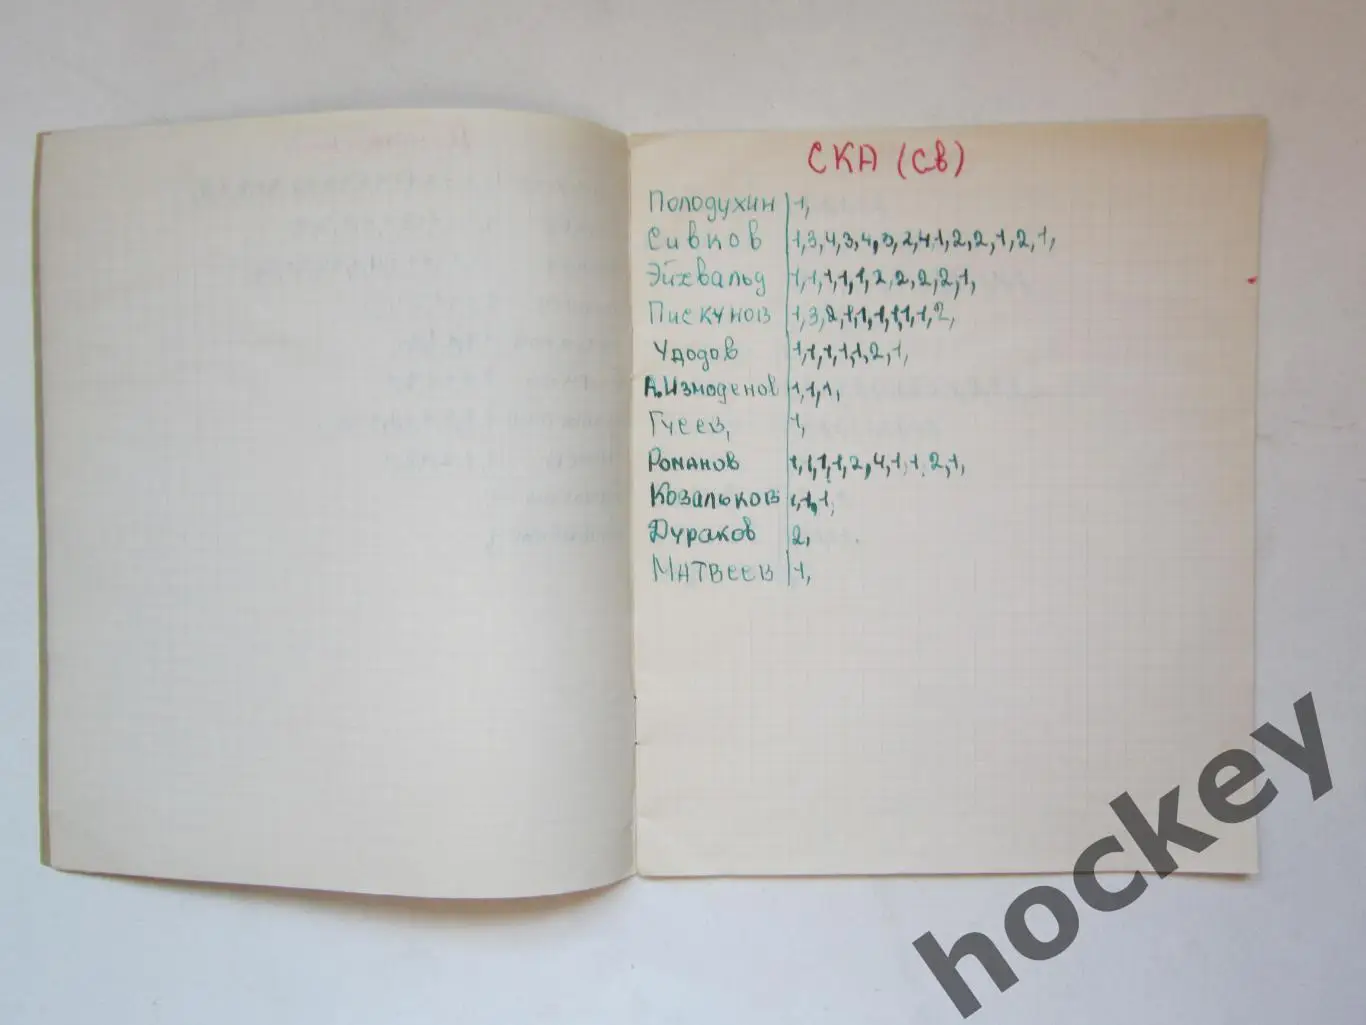 СКА (СВ)
Полодухин 1,
Сивков 1,3,4,3,4,3,2,4,1,2,2,1,2,1,
Эйхвальд 1,1,1,1,1,2,2,2,2,1,
Пискунов 1,3,2,1,1,1,1,1,1,2,
Удодов 1,1,1,1,1,2,1,
А.Измоденов 1,1,1,
Гусев, 1,
Романов 1,1,1,1,2,4,1,1,2,1,
Козальков 1,1,1,
Дураков 2,
Матвеев 1,
hockey